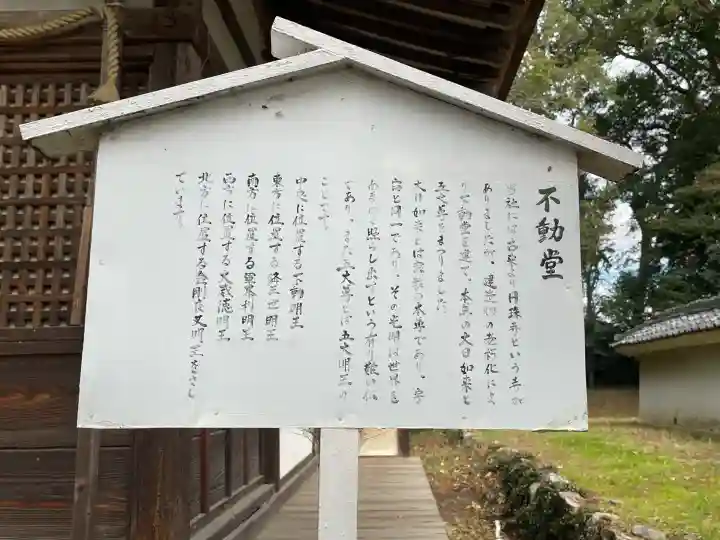 不動堂
当社には古来より円珠寺という寺が
ありましたが、建造物の老朽化によ
りて動堂を建て、本尊の大日如来と
五大尊をまつりました
大日如来とは密教の本尊であり、宇
宙と同一であり、その光明は世界を
あまねく照らし出すという有り難い仏
であり、また五大尊とは五大明王の
ことで
中央に位置する不動明王
東方に位置する降三世明王
南方に位置する軍荼利明王
西方に位置する大威徳明王
北方に位置する金剛夜叉明王をさし
ています